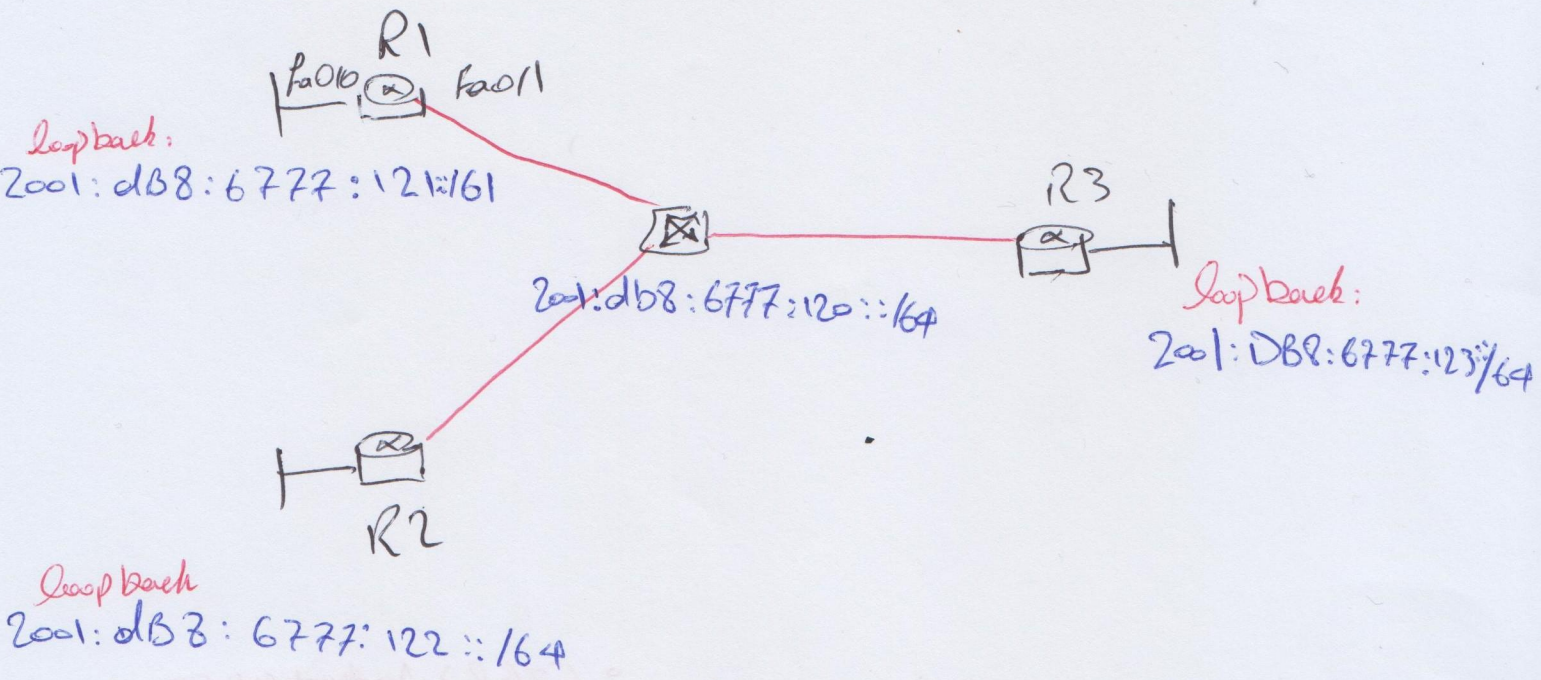 R1
Fa0/0
Fa0/1
loopback:
2001:dB8:6777:121::/61
R3
2001:db8:6777:120::/64
loopback:
2001:DB8:6777:123::/64
R2
loopback
2001:dB8:6777:122::/64